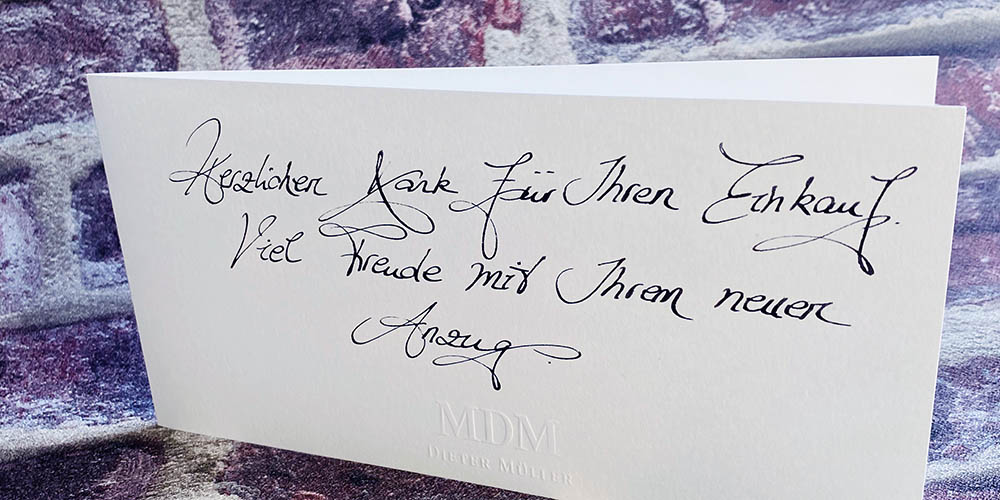 Herzlichen Dank für Ihren Einkauf.
Viel Freude mit Ihrem neuen
Anzug.
MDM
DIETER MÜLLER